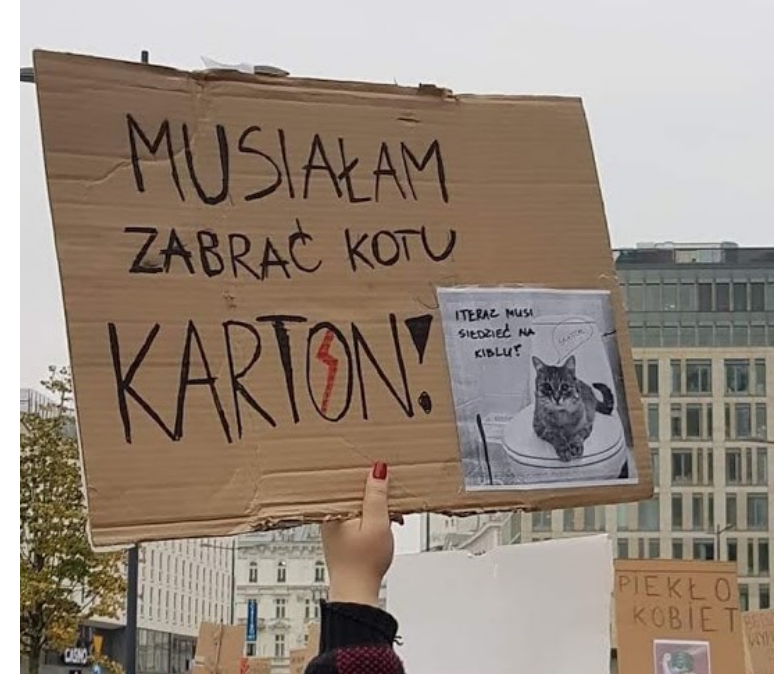 MUSIAŁAM
ZABRAĆ KOTU
KARTON!
I TERAZ MUSI
SIEDZIEĆ NA
KIBLU!
PIEKŁO
KOBIET
CASINO